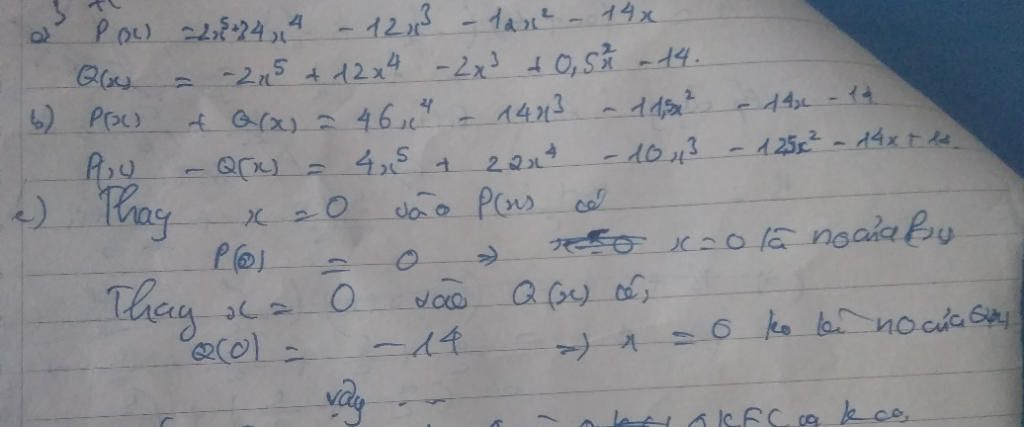 a) P(x) = 2x⁵+34x⁴ - 12x³ - 12x² - 14x
Q(x) = -2x⁵ + 12x⁴ - 2x³ + 0,5x² - 14.
b) P(x) + Q(x) = 46x⁴ - 14x³ - 11,5x² - 14x - 14
P(x) - Q(x) = 4x⁵ + 22x⁴ - 10x³ - 12,5x² - 14x + 14.
c) Thay x = 0 vào P(x) có
P(0) = 0 ⇒ x = 0 là no của P(x)
Thay x = 0 vào Q(x) có,
Q(0) = -14 ⇒ x = 0 ko là no của Q(x)
Vậy ...